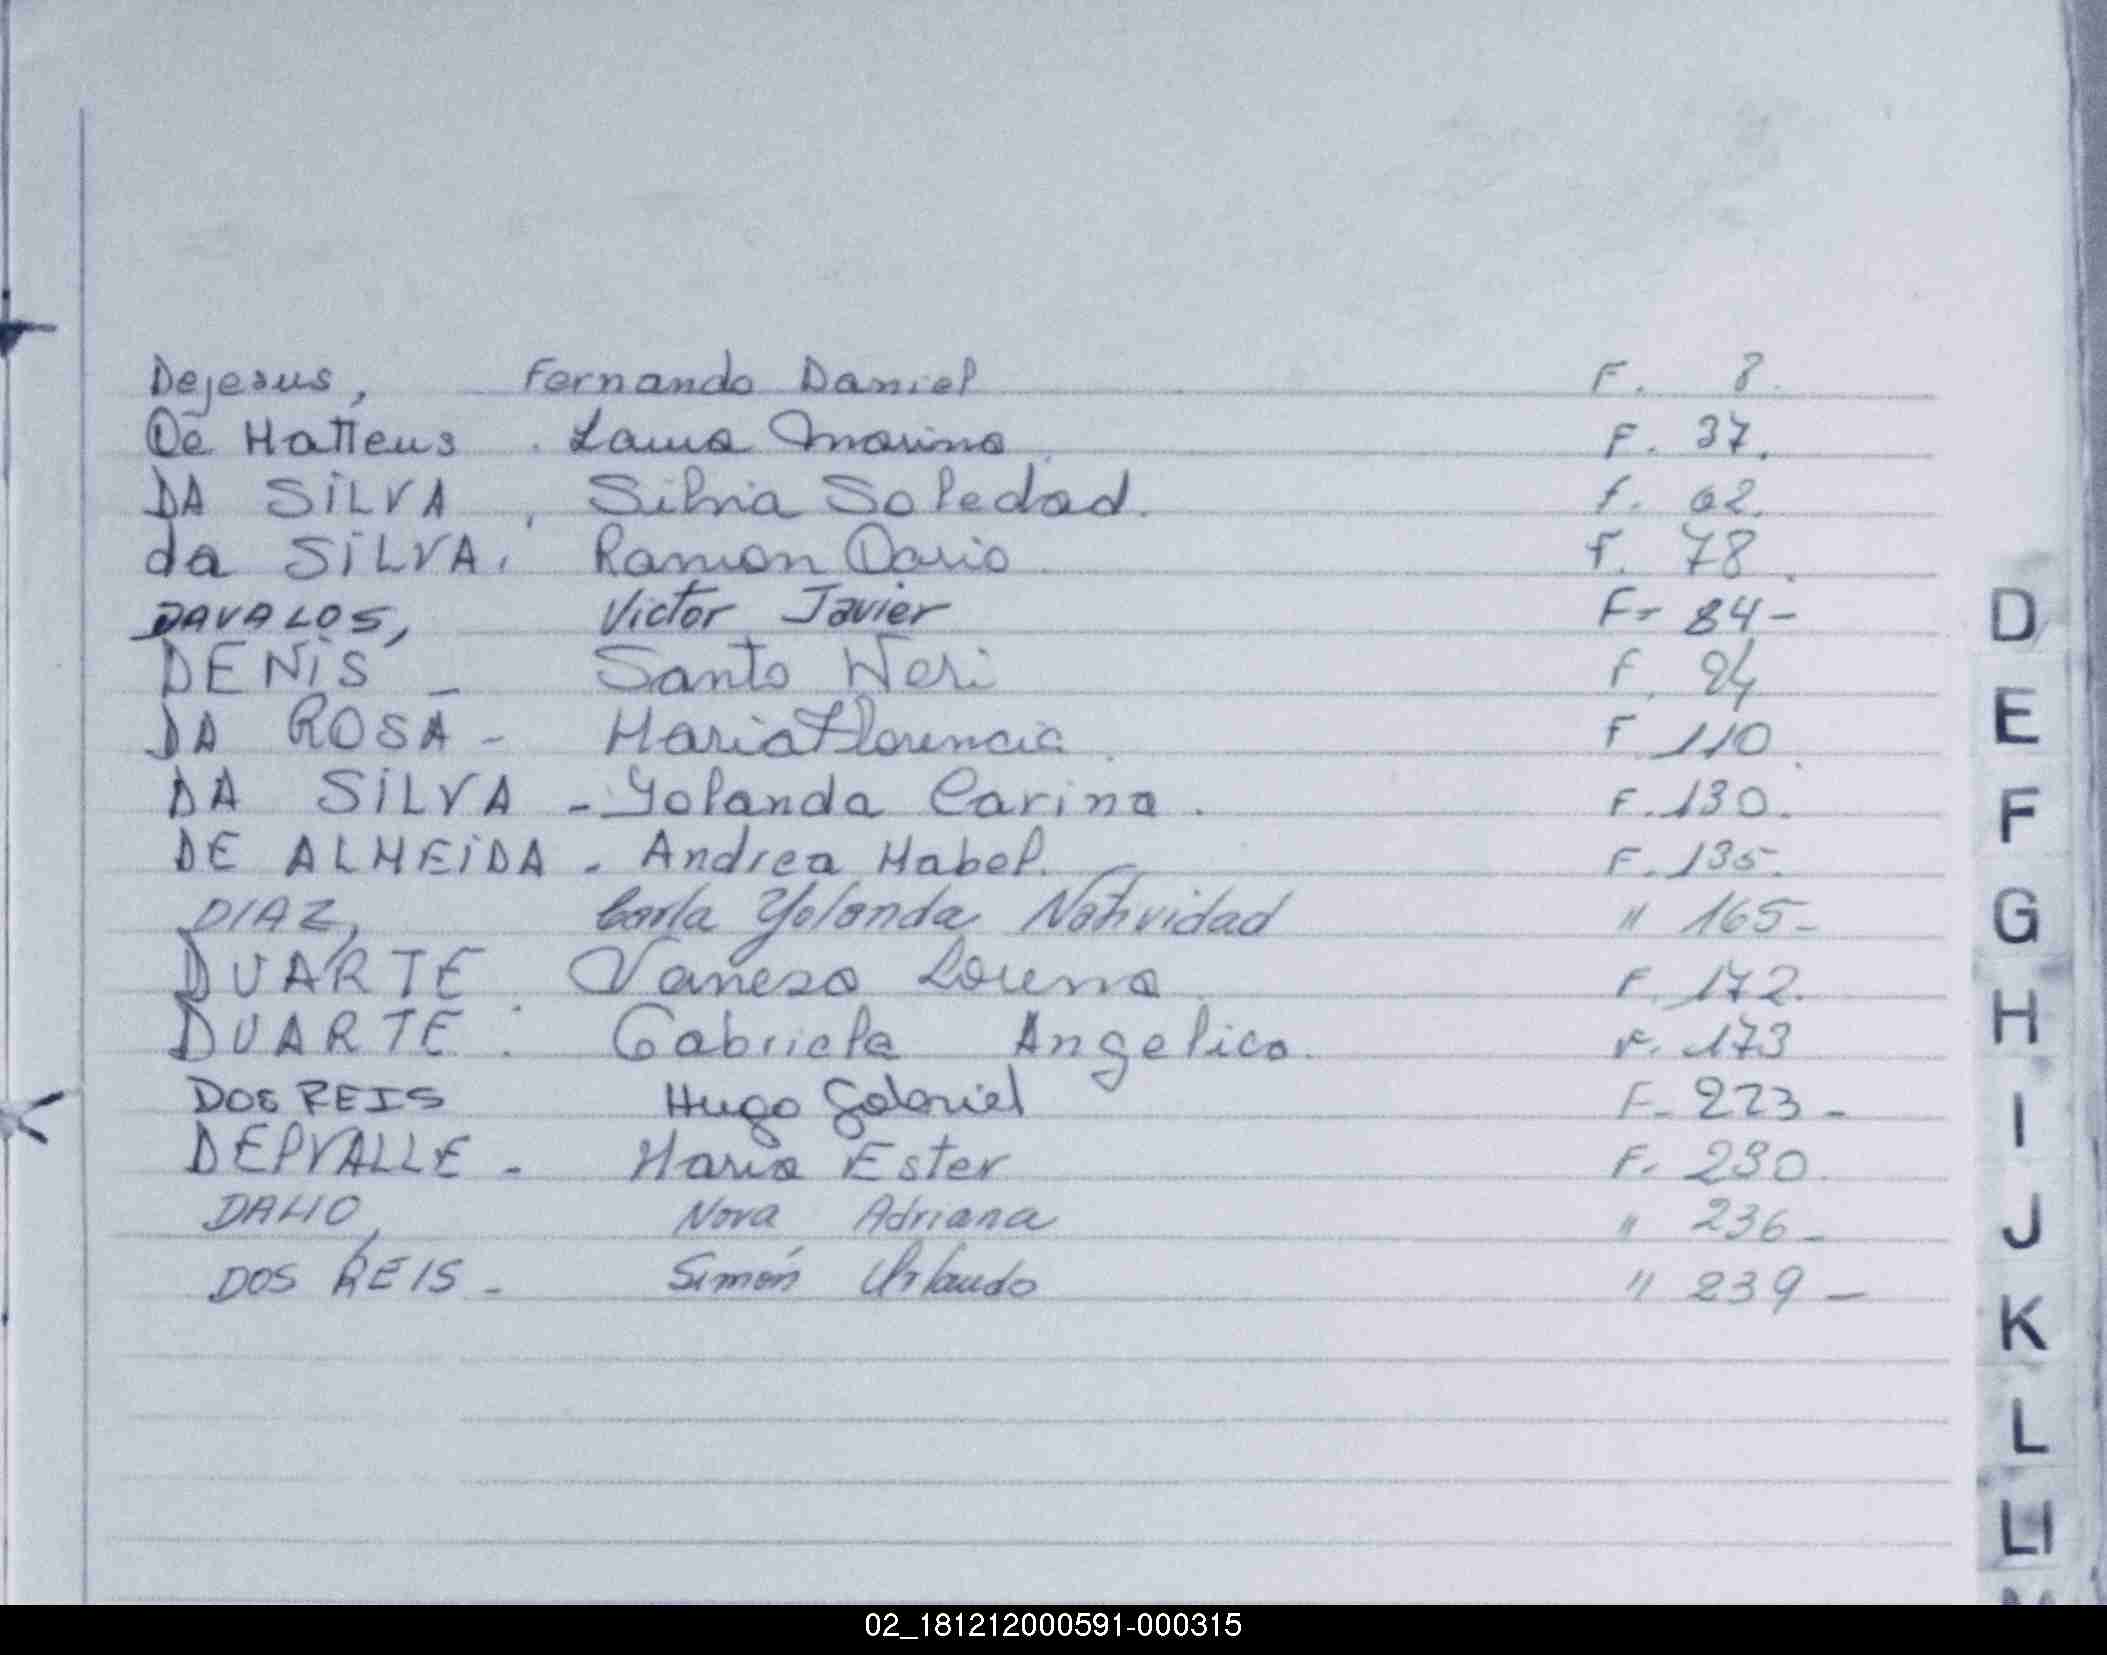 Dejesus, Fernando Daniel F. 8.
De Matteus. Laura Marina F. 37.
DA SILVA, Silvia Soledad. f. 62.
da SILVA. Ramon Dario F. 78.
DAVALOS, Victor Javier F- 84-
DENIS - Santo Neri F. 94
DA ROSA - Maria Florencia. F 110.
DA SILVA - Yolanda Carina. F. 130.
DE ALMEIDA. Andrea Mabel. F. 135.
DIAZ, Carla Yolanda Natividad " 165-
DUARTE. Vanesa Lorena F. 172.
DUARTE. Gabriela Angelica. F. 173
DOS REIS Hugo Gabriel F- 223-
DEPVALLE - Maria Ester F. 230.
DALIO, Nora Adriana " 236-
DOS REIS - Simón Orlando " 239-
D
E
F
G
H
I
J
K
L
Ll
02_181212000591-000315